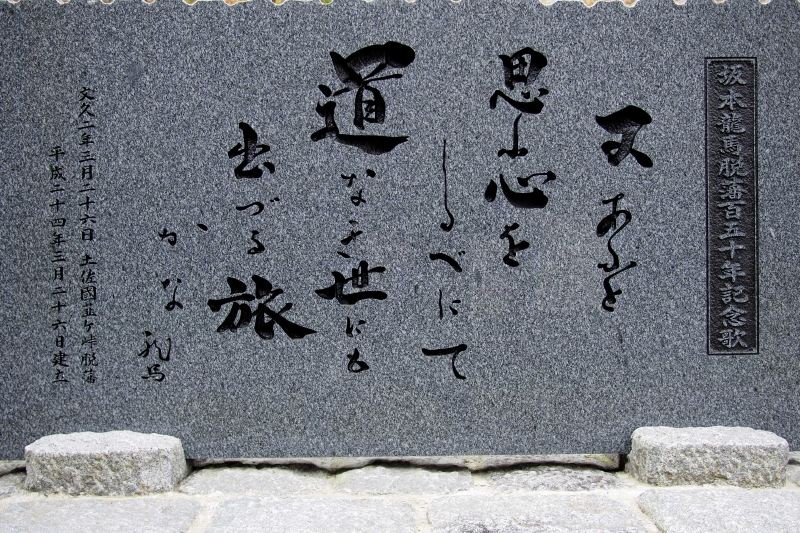 坂本龍馬脱藩百五十年記念歌
又あふと
思ふ心を
しるべにて
道なき世にも
出づる旅
かな
龍馬
文久二年三月二十六日 土佐國韮ケ峠脱藩
平成二十四年三月二十六日建立